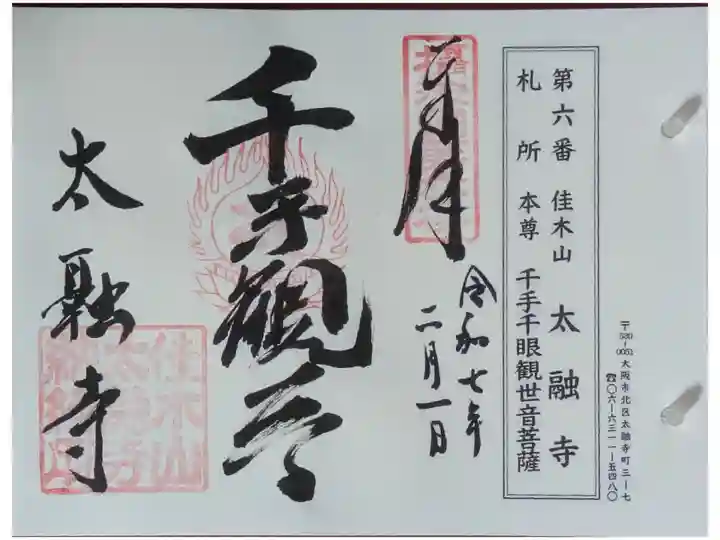 第六番 佳木山 太融寺
札所 本尊 千手千眼観世音菩薩
〒530-0051 大阪市北区太融寺町三-七
☎〇六-六三一一-五四八〇
奉拝
令和七年
二月一日
千手観音
太融寺